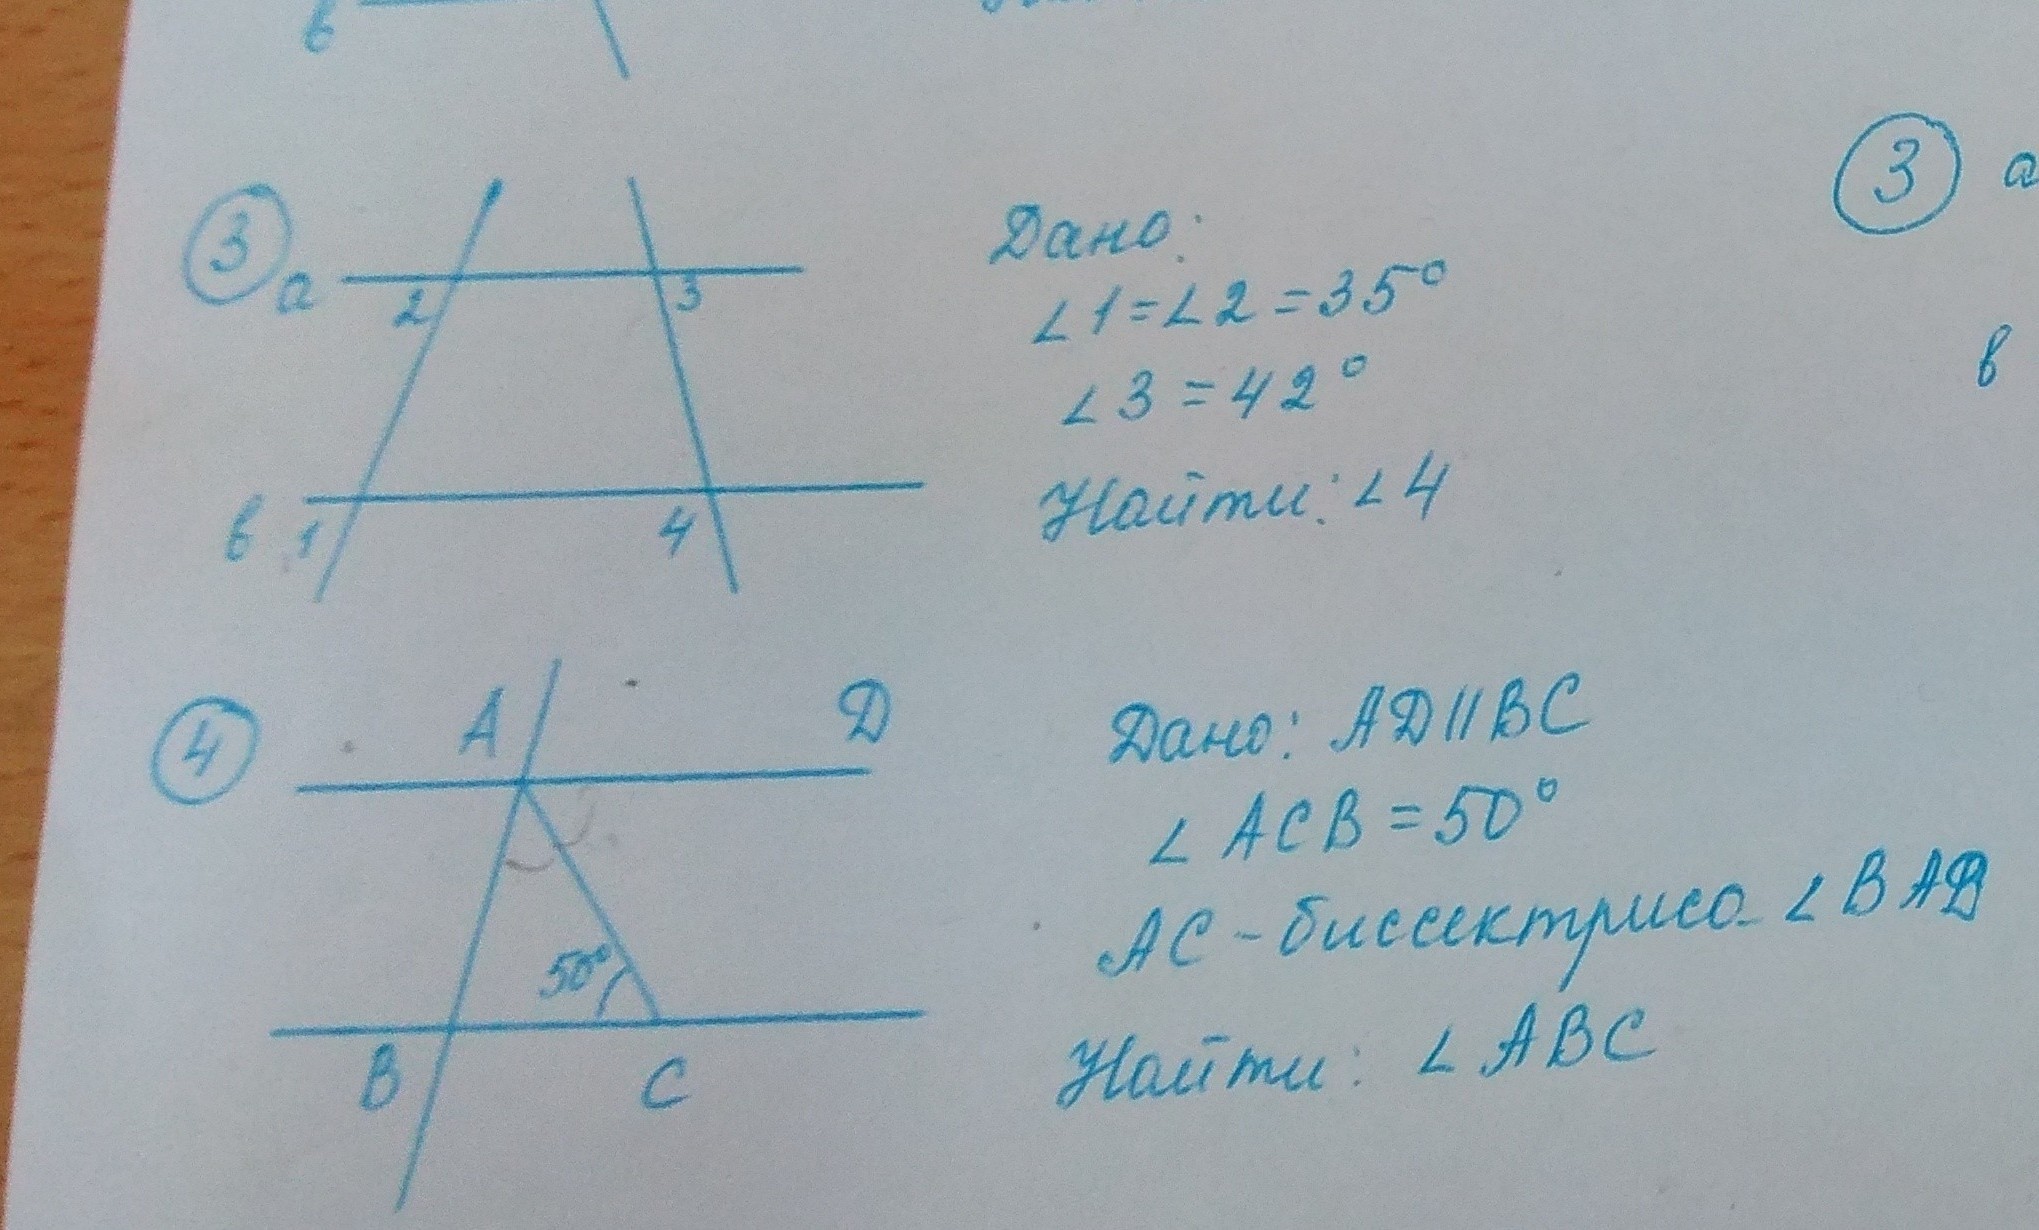 в
3
а
2
3
в
1
4
Дано:
∠1=∠2=35°
∠3=42°
Найти: ∠4
3
а
в
4
A
D
50°
B
C
Дано: AD||BC
∠ACB=50°
AC-биссектриса ∠BAD
Найти: ∠ABC